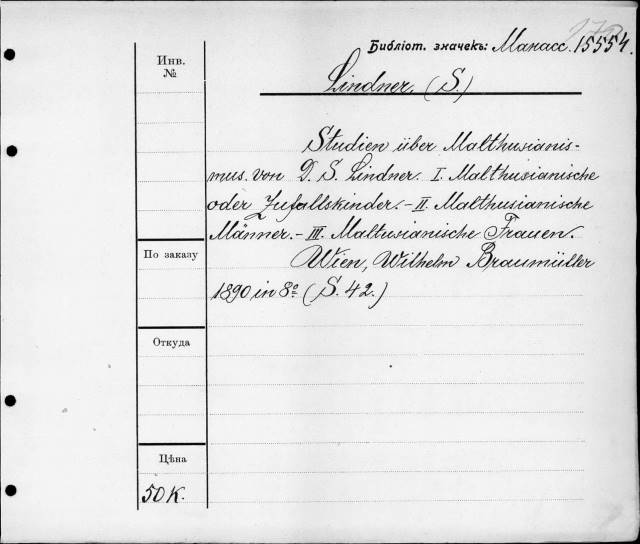 Библіот. значекъ: Манасс. 15554.
Инв.
№
Lindner. (S.)
Studien über Malthusianis-
mus. von D. S. Lindner. I. Malthusianische
oder Zufallskinder. - II. Malthusianische
Männer. - III. Maltusianische Frauen.
По заказу
Wien, Wilhelm Braumüller
1890 in 8º (S. 42.)
Откуда
Цѣна
50 К.